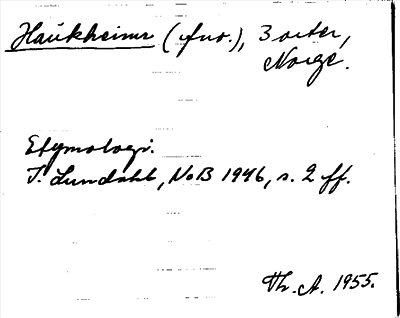 Haukheimr (fno.), 3 orter,
Norge.
Etymologi.
I. Lundahl, NoB 1946, s. 2 ff.
Th. A. 1955.